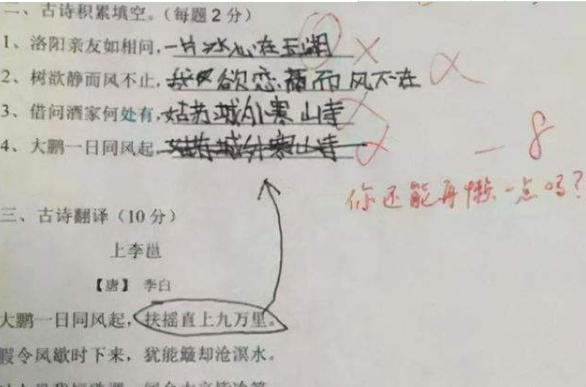 二、古诗积累填空。(每题2分)
1、洛阳亲友如相问,一片冰心在玉湖
2、树欲静而风不止,我欲恋而风不在
3、借问酒家何处有,姑苏城外寒山寺
4、大鹏一日同风起,姑苏城外寒山寺
-8
你还能再懒一点吗?
三、古诗翻译(10分)
上李邕
【唐】 李白
大鹏一日同风起,扶摇直上九万里。
假令风歇时下来,犹能簸却沧溟水。